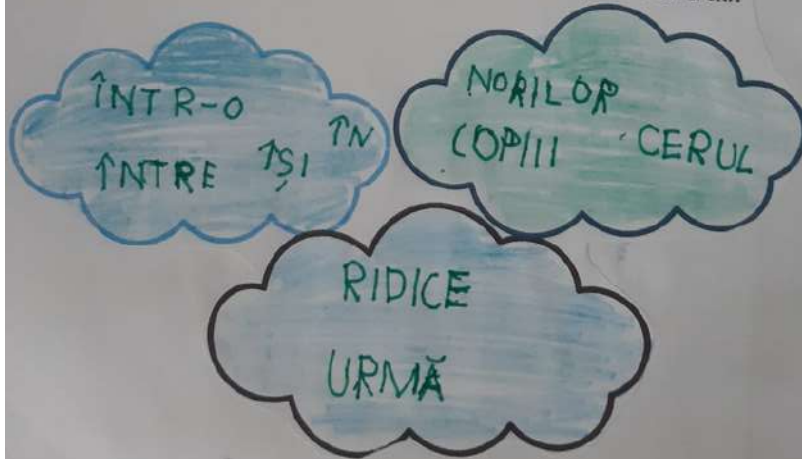 ÎNTR-O
ÎN
ÎNTRE ÎȘI
NORILOR
COPIII CERUL
RIDICE
URMĂ